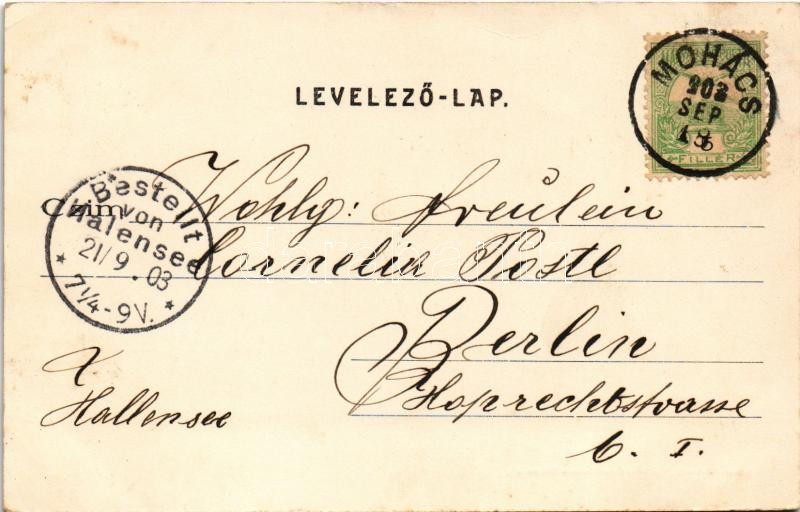 LEVELEZŐ-LAP.
MOHÁCS
903
SEP
FILLÉR
Bestellt
von
Halensee
21/9.03
* 7¼-9V. *
Czim
Wohlg: Freulein
Cornelia Postl
Berlin
Hallensee
6. I.